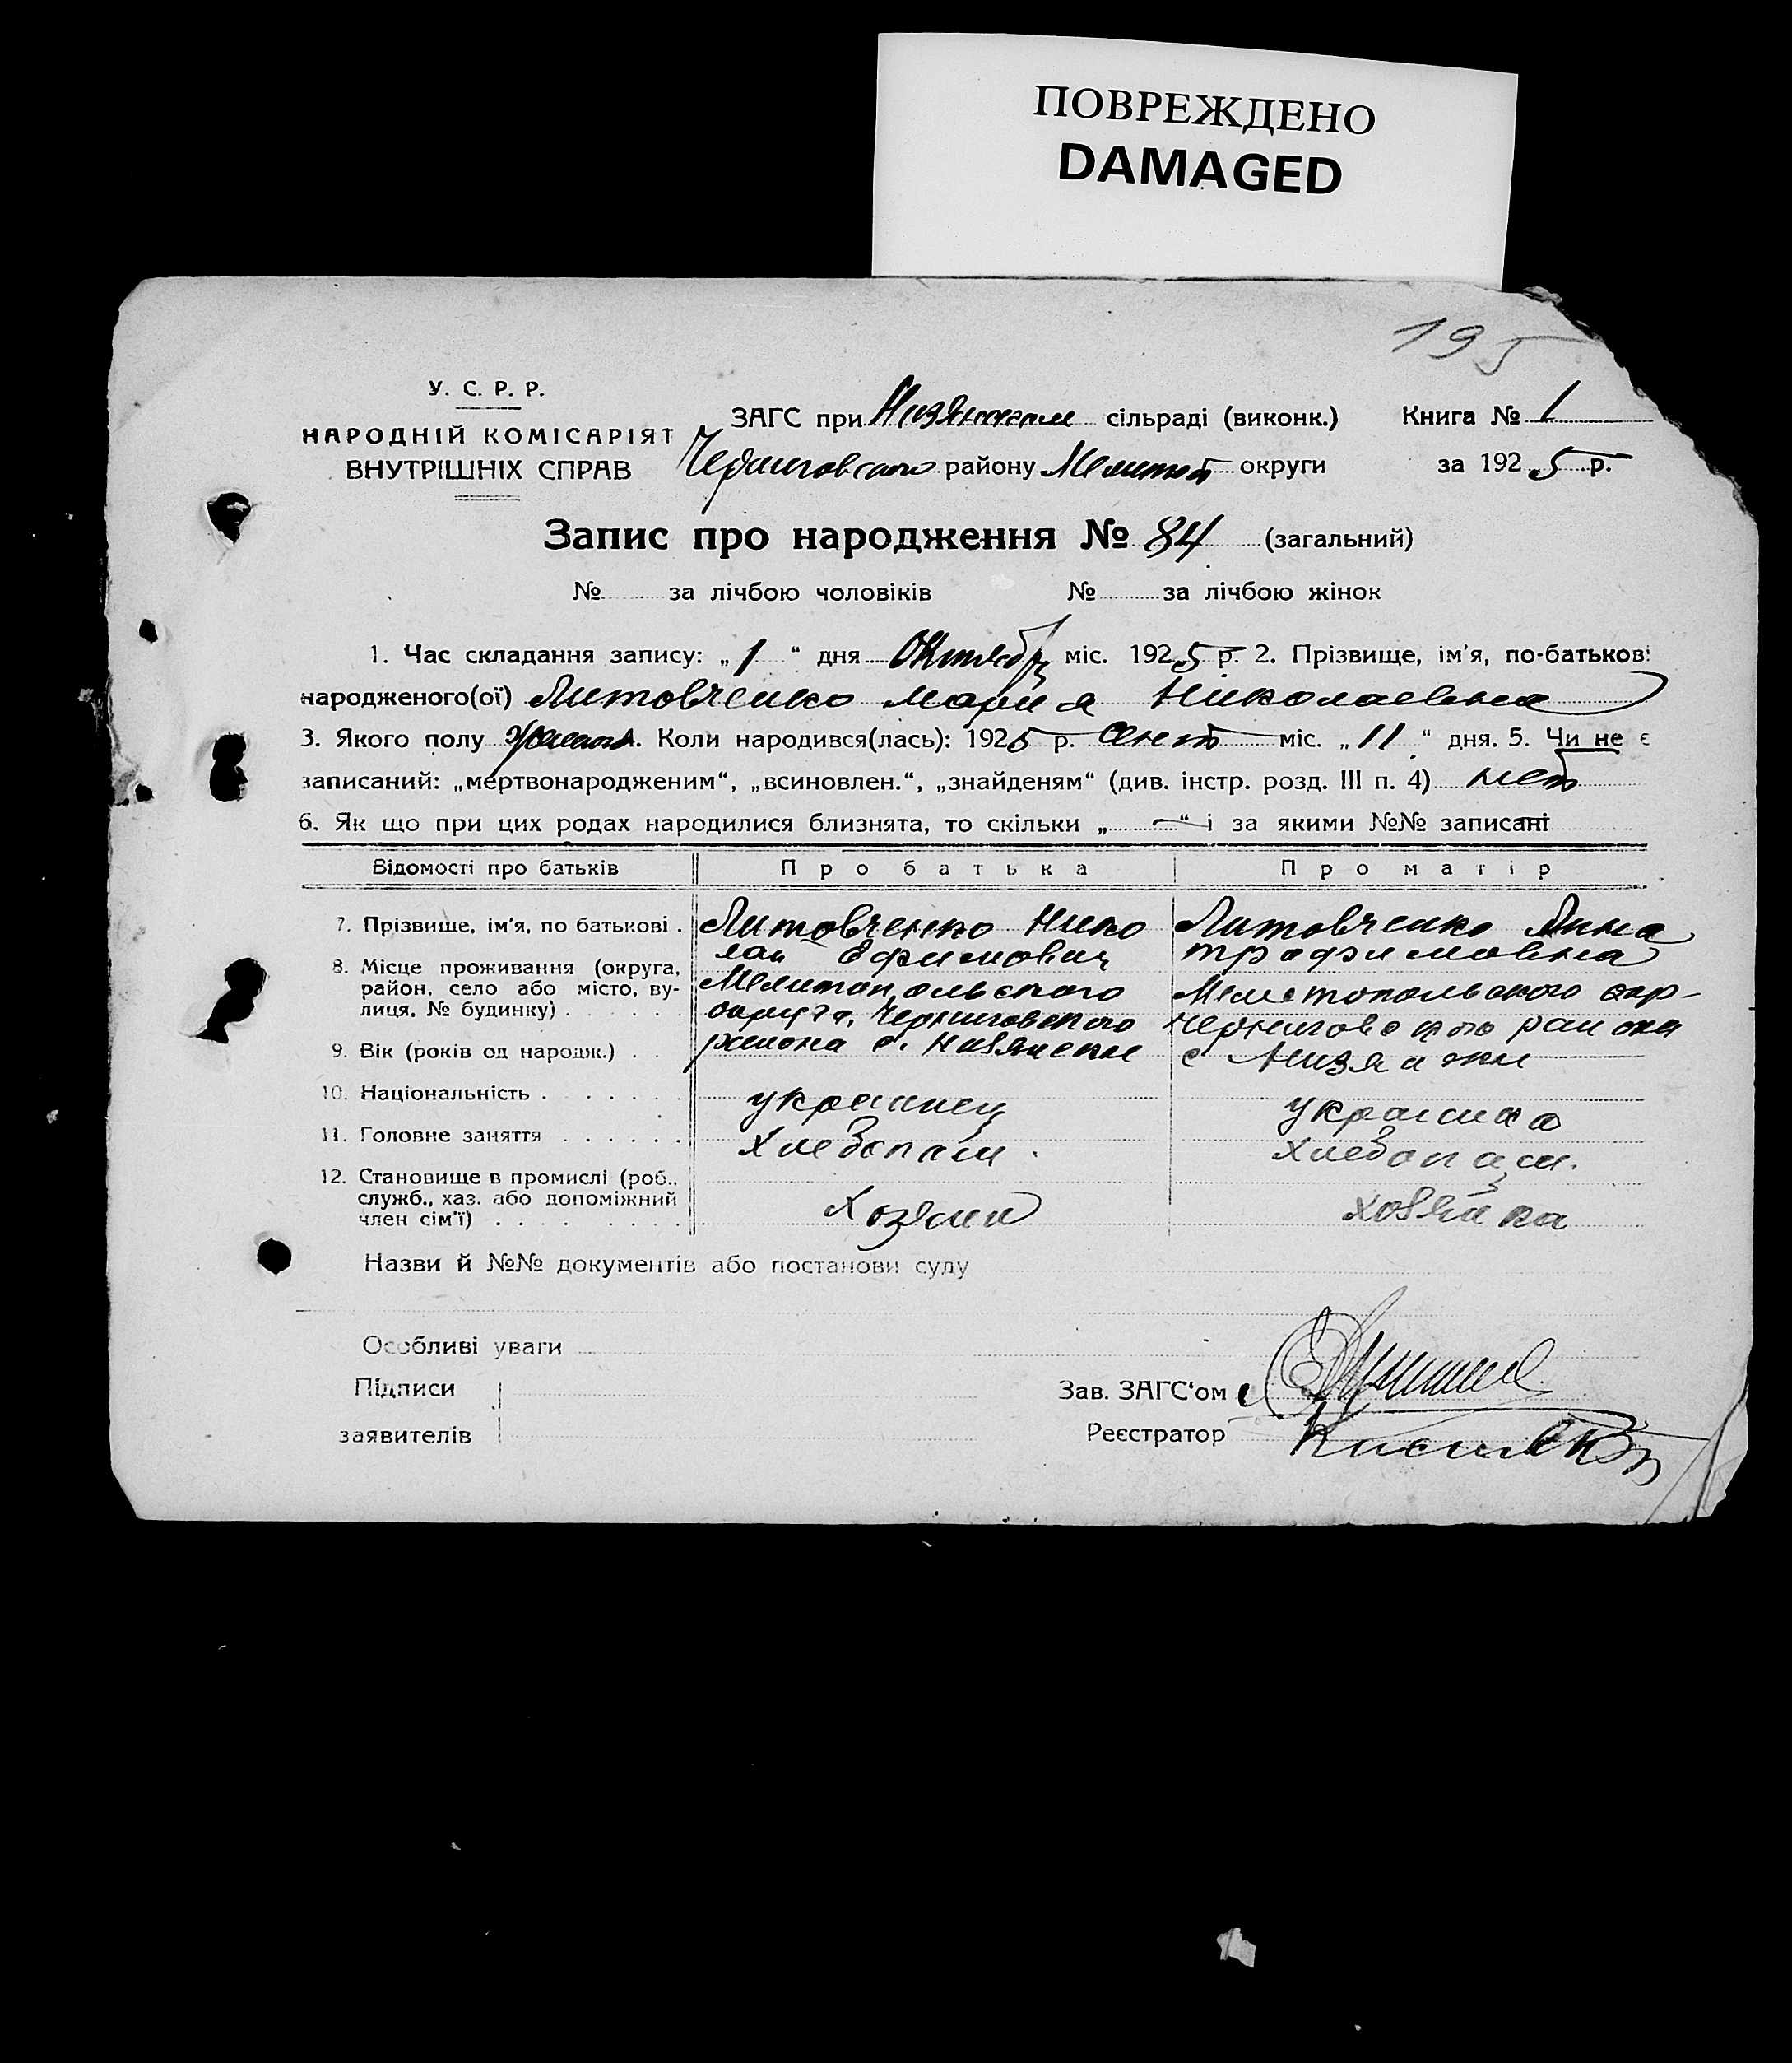 ПОВРЕЖДЕНО
DAMAGED
195
У. С. Р. Р.
НАРОДНІЙ КОМІСАРІЯТ
ВНУТРІШНІХ СПРАВ
ЗАГС при сільраді (виконк.) Книга № 1
Черниговского району Мелитоп округи за 1925 р.
Запис про народження № 84 (загальний)
№ за лічбою чоловіків № за лічбою жінок
1. Час складання запису: „1“ дня Октября міс. 1925 р. 2. Прізвище, ім'я, по-батькові
народженого(ої) Литовченко Мария Николаевна
3. Якого полу 4. Коли народився(лась): 1925 р. Сент міс. „11“ дня. 5. Чи не є
записаний: „мертвонародженим“, „всиновлен.“, „знайденям“ (див. інстр. розд. III п. 4) нет
6. Як що при цих родах народилися близнята, то скільки „—“ і за якими №№ записані
Відомості про батьків Про батька Про матір
7. Прізвище, ім'я, по батькові . Литовченко Нико Литовченко Анна
лай Ефимович Трофимовна
8. Місце проживання (округа, район, село або місто, вулиця, № будинку) . . . . . .
Мелитопольского Мелитопольского окр-
округа, Черниговского Черниговского района
района с. Низянски с Низяни
9. Вік (років од народж.) . .
10. Національність . . . . . . . украинец украинка
11. Головне заняття . . . . . . Хлебопаш. Хлебопаш.
12. Становище в промислі (роб.,
служб., хаз. або допоміжний
член сім'ї) . . . . . . . . Хозяин Хозяйка
Назви й №№ документів або постанови суду
Особливі уваги
Підписи
заявителів
Зав. ЗАГС'ом
Реєстратор